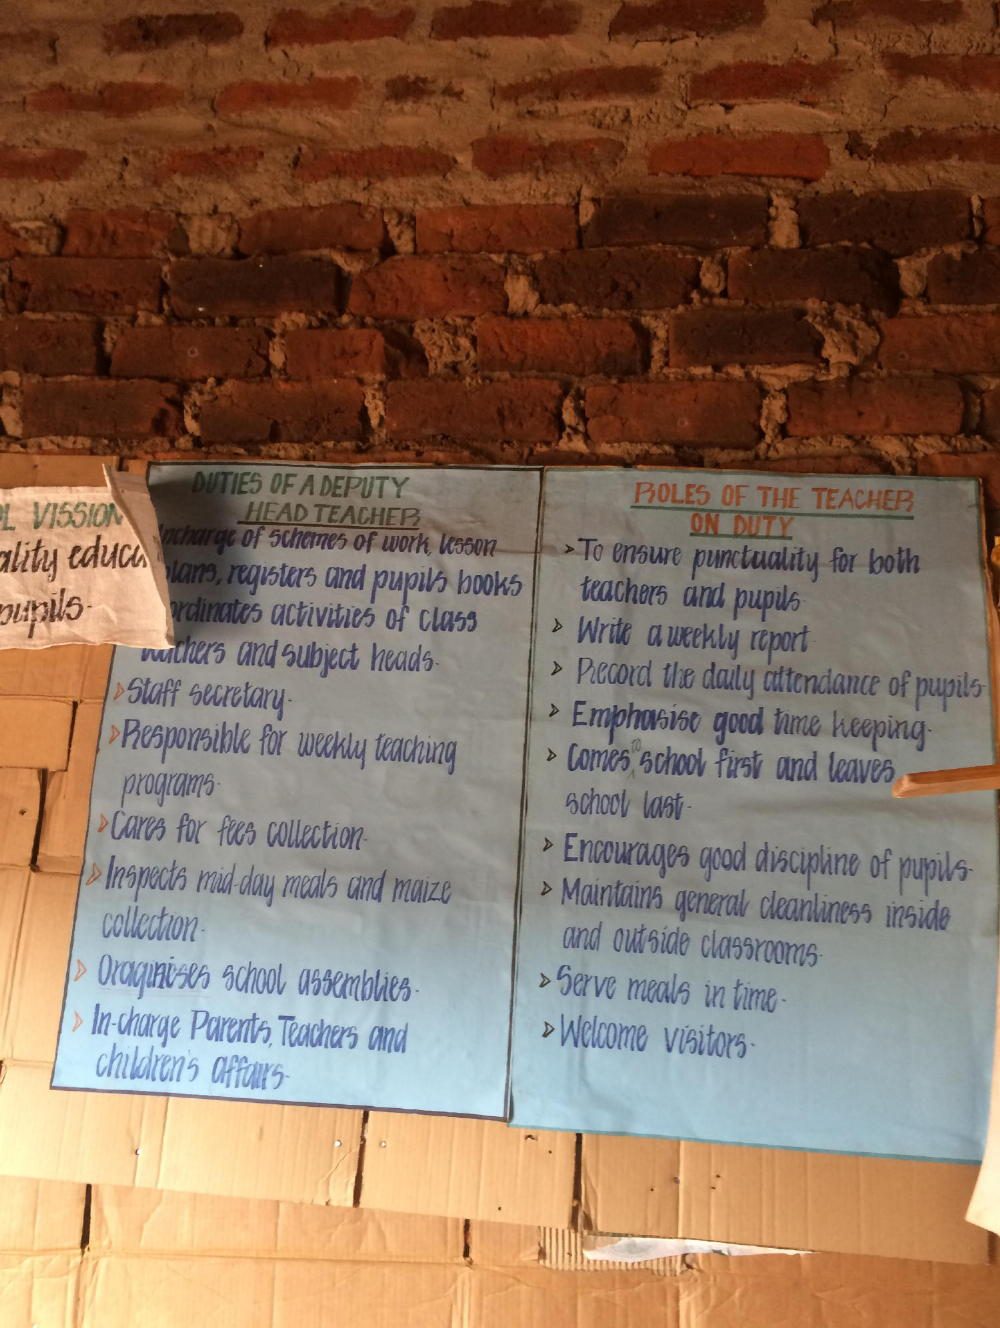 VISSION
pupils.
DUTIES OF A DEPUTY
HEAD TEACHER
Incharge of schemes of work, lesson
plans, registers and pupils books
activities of class
teachers and subject heads.
Staff secretary.
Responsible for weekly teaching
programs.
Cares for fees collection.
Inspects mid-day meals and maize
collection.
Oraginises school assemblies.
In-charge Parents, Teachers and
children's affairs.
ROLES OF THE TEACHER
ON DUTY
To ensure punctuality for both
teachers and pupils
Write a weekly report
Record the daily attendance of pupils.
Emphasise good time keeping.
Comes to school first and leaves
school last.
Encourages good discipline of pupils.
Maintains general cleanliness inside
and outside classrooms.
Serve meals in time.
Welcome visitors.